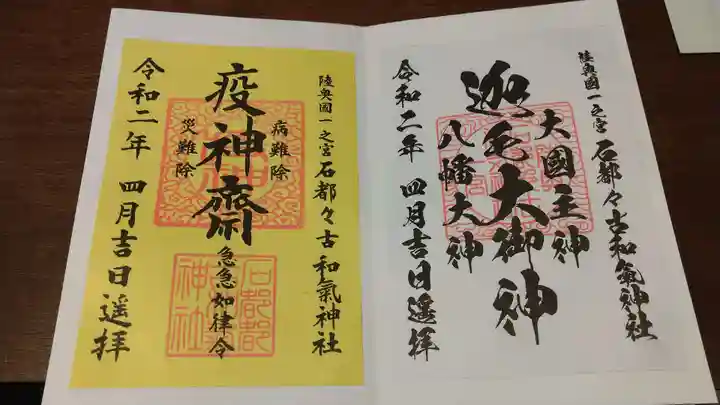 陸奥國一之宮 石都々古和氣神社
大國主神
迦毛大御神
八幡大神
令和二年 四月吉日遥拝
陸奥國一之宮 石都々古和氣神社
病難除
疫神齋
災難除
急急如律令
石都都
神社
令和二年 四月吉日遥拝